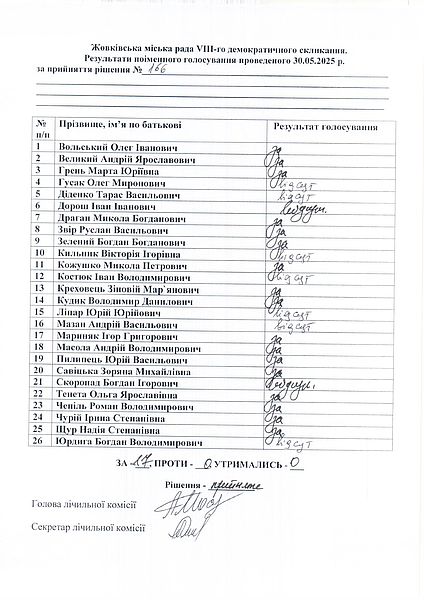 Жовківська міська рада VIII-го демократичного скликання.
Результати поіменного голосування проведеного 30.05.2025 р.
за прийняття рішення № 166
№ п/п Прізвище, ім’я по батькові Результат голосування
1 Вольський Олег Іванович за
2 Великий Андрій Ярославович за
3 Грень Марта Юріївна за
4 Гусак Олег Миронович відсут
5 Діденко Тарас Васильович відсут
6 Дорош Іван Іванович
7 Драган Микола Богданович за
8 Звір Руслан Васильович за
9 Зелений Богдан Богданович за
10 Кильник Вікторія Ігорівна відсут
11 Кожушко Микола Петрович за
12 Костюк Іван Володимирович відсут
13 Креховець Зіновій Мар`янович за
14 Кудик Володимир Данилович за
15 Ліпар Юрій Юрійович відсут
16 Мазан Андрій Васильович відсут
17 Мариняк Ігор Григорович за
18 Масола Андрій Володимирович за
19 Пилипець Юрій Васильович за
20 Савіцька Зоряна Михайлівна за
21 Скоропад Богдан Ігорович
22 Тенета Ольга Ярославівна за
23 Чепіль Роман Володимирович за
24 Чурій Ірина Степанівна за
25 Щур Надія Степанівна за
26 Юрдига Богдан Володимирович відсут
ЗА - 17. ПРОТИ - 0. УТРИМАЛИСЬ - 0
Рішення - прийнято
Голова лічильної комісії
Секретар лічильної комісії